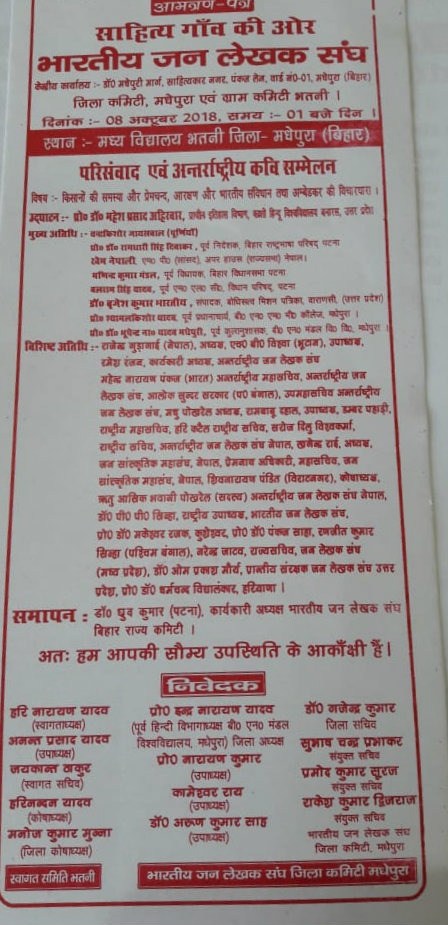 आमंत्रण-पत्र
साहित्य गाँव की ओर
भारतीय जन लेखक संघ
केन्द्रीय कार्यालय :- डॉ0 मधेपुरी मार्ग, साहित्यकार नगर, पंकज लेन, वार्ड नं0-01, मधेपुरा (बिहार)
जिला कमिटी, मधेपुरा एवं ग्राम कमिटी भतनी ।
दिनांक :- 08 अक्टूबर 2018, समय :- 01 बजे दिन ।
स्थान :- मध्य विद्यालय भतनी जिला- मधेपुरा (बिहार)
परिसंवाद एवं अन्तर्राष्ट्रीय कवि सम्मेलन
विषय :- किसानों की समस्या और प्रेमचन्द, आरक्षण और भारतीय संविधान तथा अम्बेडकर की विचारधारा ।
उद्घाटन :- प्रो0 डॉ0 महेश प्रसाद अहिरवार, प्राचीन इतिहास विभाग, काशी हिन्दू विश्वविद्यालय बनारस, उत्तर प्रदेश
मुख्य अतिथि :- नन्दकिशोर जायसवाल (पूर्णियाँ)
प्रो0 डॉ0 रामधारी सिंह दिवाकर , पूर्व निदेशक, बिहार राष्ट्रभाषा परिषद् पटना
खेम नेपाली, एम0 पी0 (सांसद), अपर हाउस (राज्यसभा) नेपाल।
मणिन्द्र कुमार मंडल, पूर्व विधायक, बिहार विधानसभा पटना
बलराम सिंह यादव, पूर्व एम0 एल0 सी0, विधान परिषद्, पटना
डॉ0 बृजेश कुमार भारतीय , संपादक, बोधिसत्व मिशन पत्रिका, वाराणसी, (उत्तर प्रदेश)
प्रो0 श्यामलकिशोर यादव, पूर्व प्रधानाचार्य, बी0 एन0 एम0 भी0 कॉलेज, मधेपुरा ।
प्रो0 डॉ0 भूपेन्द्र ना0 यादव मधेपुरी, पूर्व कुलानुशासक, बी0 एन0 मंडल वि0 वि0, मधेपुरा ।
विशिष्ट अतिथि :- राजेन्द्र गुड़ागाई (नेपाल), अध्यक्ष, एच0 बी0 विश्वा (भूटान), उपाध्यक्ष,
रमेश रंजन, कार्यकारी अध्यक्ष, अन्तर्राष्ट्रीय जन लेखक संघ
महेन्द्र नारायण पंकज (भारत) अन्तर्राष्ट्रीय महासचिव, अन्तर्राष्ट्रीय जन
लेखक संघ, आलोक सुन्दर सरकार (प0 बंगाल), उपमहासचिव अन्तर्राष्ट्रीय
जन लेखक संघ, मधु पोखरेल अध्यक्ष, रामबाबू दहाल, उपाध्यक्ष, डम्बर पहाड़ी,
राष्ट्रीय महासचिव, हरि कटैल राष्ट्रीय सचिव, सरोज दिलु विश्वकर्मा,
राष्ट्रीय सचिव, अन्तर्राष्ट्रीय जन लेखक संघ नेपाल, खगेन्द्र राई, अध्यक्ष,
जन सांस्कृतिक महासंघ, नेपाल, प्रेमनाथ अधिकारी, महासचिव, जन
सांस्कृतिक महासंघ, नेपाल, शिवनारायण पंडित (विराटनगर), कोषाध्यक्ष,
ऋतु आसिक भवानी पोखरेल (सदस्य) अन्तर्राष्ट्रीय जन लेखक संघ नेपाल,
डॉ0 पी0 पी0 सिन्हा, राष्ट्रीय उपाध्यक्ष, भारतीय जन लेखक संघ,
प्रो0 डॉ0 मकेश्वर रजक, कुशेश्वर, प्रो0 डॉ0 पंकज साहा, रणजीत कुमार
सिन्हा (पश्चिम बंगाल), नरेन्द्र जाटव, राज्यसचिव, जन लेखक संघ
(मध्य प्रदेश), डॉ0 ओम प्रकाश मौर्य, प्रान्तीय संरक्षक जन लेखक संघ उत्तर
प्रदेश, प्रो0 डॉ0 धर्मचन्द विद्यालंकार, हरियाणा ।
समापन : डॉ0 ध्रुव कुमार (पटना), कार्यकारी अध्यक्ष भारतीय जन लेखक संघ
बिहार राज्य कमिटी ।
अतः हम आपकी सौम्य उपस्थिति के आकाँक्षी हैं।
निवेदक
हरि नारायण यादव
(स्वागताध्यक्ष)
अनन्त प्रसाद यादव
(उपाध्यक्ष)
जयकान्त ठाकुर
(स्वागत सचिव)
हरिनन्दन यादव
(कोषाध्यक्ष)
मनोज कुमार मुन्ना
(जिला कोषाध्यक्ष)
स्वागत समिति भतनी
प्रो0 इन्द्र नारायण यादव
(पूर्व हिन्दी विभागाध्यक्ष बी0 एन0 मंडल
विश्वविद्यालय, मधेपुरा) जिला अध्यक्ष
प्रो0 नारायण कुमार
(उपाध्यक्ष)
कामेश्वर राय
(उपाध्यक्ष)
डॉ0 अरूण कुमार साह
(उपाध्यक्ष)
डॉ0 गजेन्द्र कुमार
जिला सचिव
सुभाष चन्द्र प्रभाकर
संयुक्त सचिव
प्रमोद कुमार सूरज
संयुक्त सचिव
राकेश कुमार द्विजराज
संयुक्त सचिव
भारतीय जन लेखक संघ
जिला कमिटी, मधेपुरा
भारतीय जन लेखक संघ जिला कमिटी मधेपुरा